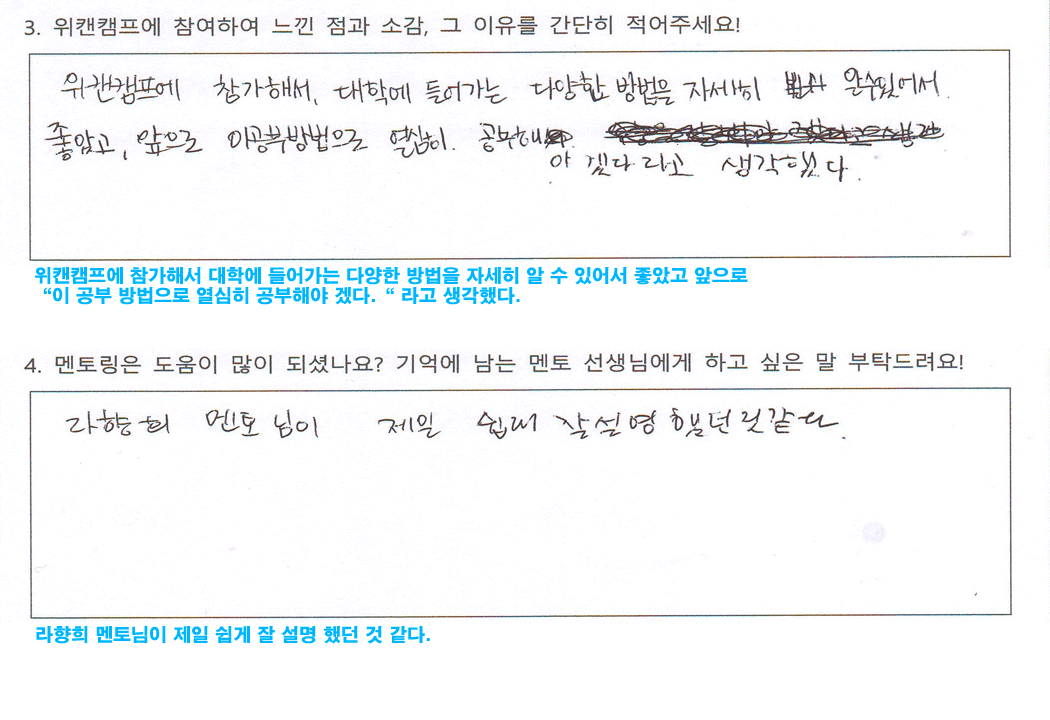 3. 위캔캠프에 참여하여 느낀 점과 소감, 그 이유를 간단히 적어주세요!
위캔캠프에 참가해서, 대학에 들어가는 다양한 방법을 자세히 알수있어서
좋았고, 앞으로 이공부방법으로 열심히 공부해
야 겠다 라고 생각했다.
위캔캠프에 참가해서 대학에 들어가는 다양한 방법을 자세히 알 수 있어서 좋았고 앞으로
“이 공부 방법으로 열심히 공부해야 겠다. “ 라고 생각했다.
4. 멘토링은 도움이 많이 되셨나요? 기억에 남는 멘토 선생님에게 하고 싶은 말 부탁드려요!
라향희 멘토님이 제일 쉽게 잘 설명 했던 것 같다.
라향희 멘토님이 제일 쉽게 잘 설명 했던 것 같다.